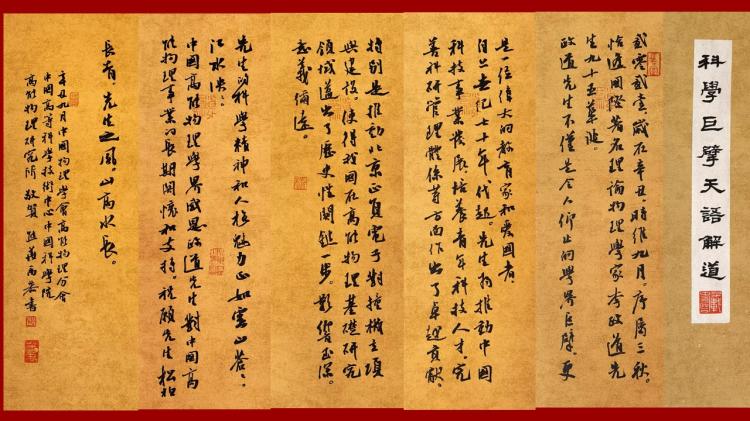 科學巨擘天語解道
贰零贰壹歲在辛丑，時維九月，序屬三秋。
恰逢國際著名理論物理學家李政道先
生九十五華誕。
政道先生不僅是令人仰止的學界巨擘，更
是一位偉大的教育家和愛國者。
自上世紀七十年代起，先生為推動中國
科技事業發展，培養青年科技人才，完
善科研管理體係等方面作出了卓越貢獻。
特別是推動北京正負電子對撞機立項
與建設，使得我國在高能物理基礎研究
領域邁出了歷史性關鍵一步。影響至深，
意義彌遠。
先生的科學精神和人格魅力正如雲山蒼々，
江水泱々。
中國高能物理學界感恩政道先生對中國高
能物理事業的長期關懷和支持。祝願先生松柏
長青。先生之風，山高水長。
辛丑九月中國物理學會高能物理分會
中國高等科學技術中心中國科學院
高能物理研究所 敬賀 書